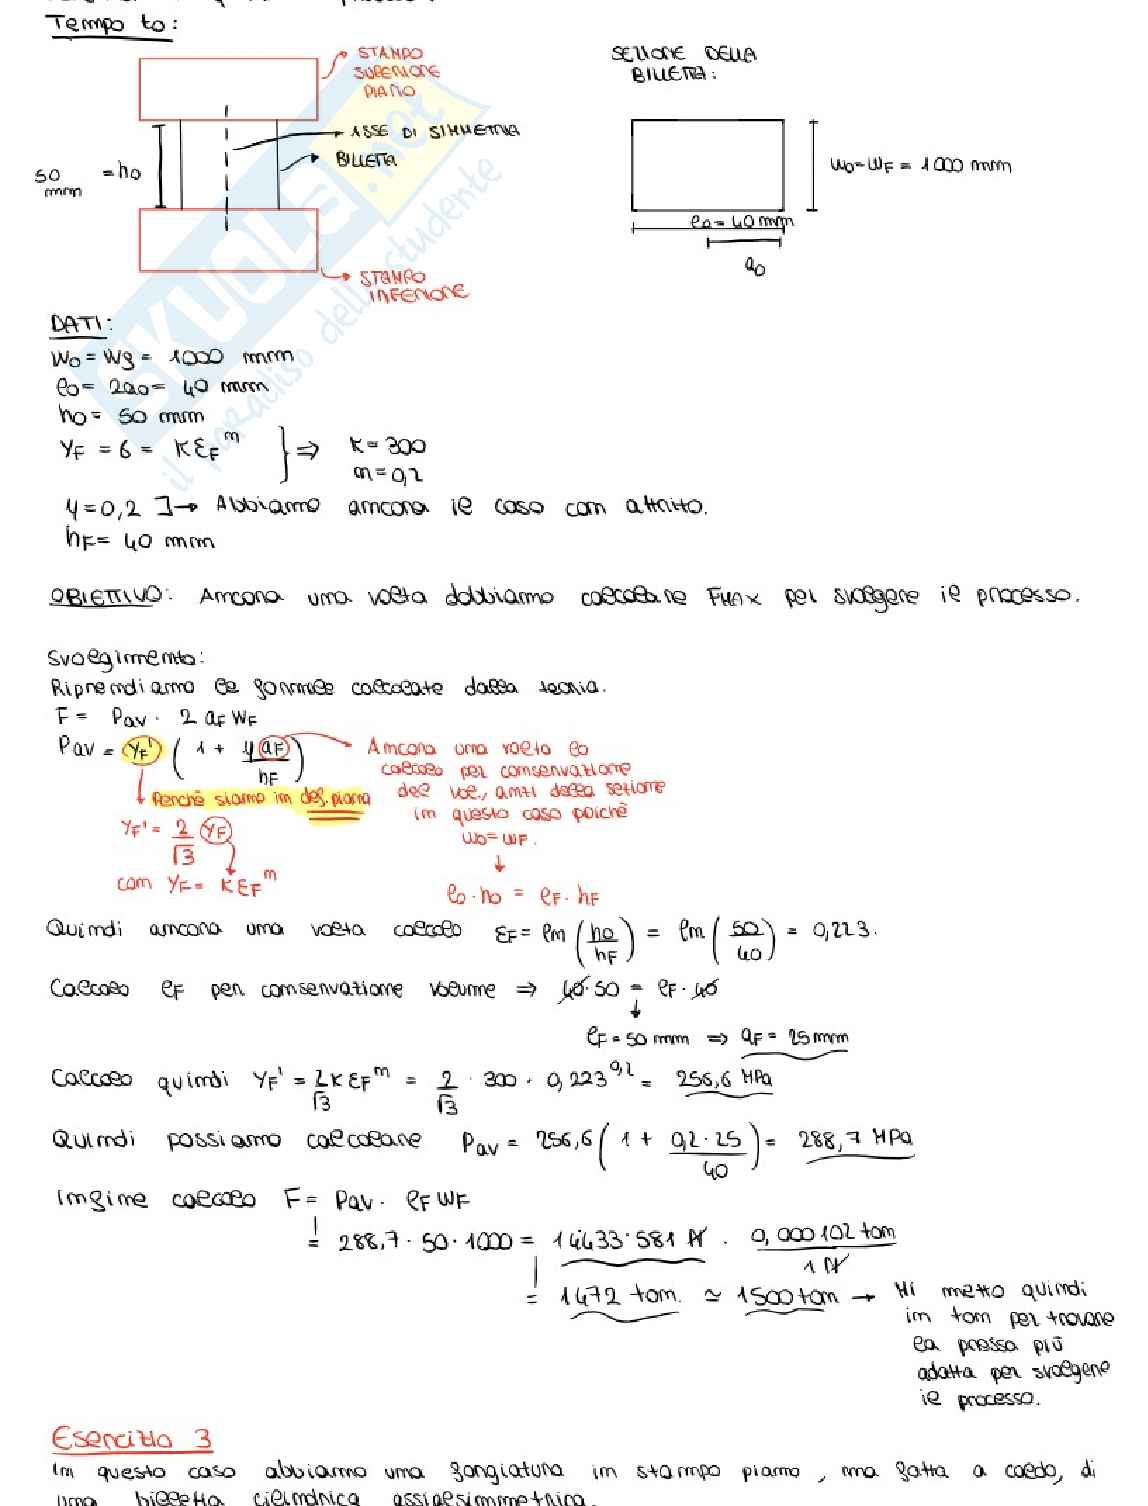 Tempo to:
STAMPO
SUPERIORE
PIANO
ASSE DI SIMMETRIA
BILLETTA
50 mm = h0
STAMPO
INFERIORE
SEZIONE DELLA
BILLETTA:
w0=wF = 1000 mm
l0 = 40 mm
a0
SKUOLA.net
il paradiso dello studente
DATI:
w0 = wf = 1000 mm
l0 = 2a0 = 40 mm
h0 = 50 mm
YF = 6 = KεF^m } ⇒ K = 300
m = 0,2
μ = 0,2 ]→ Abbiamo ancora il caso con attrito.
hF = 40 mm
OBIETTIVO: Ancora una volta dobbiamo calcolare FMAX per svolgere il processo.
Svolgimento:
Riprendiamo le formule calcolate dalla teoria.
F = Pav · 2 aF wF
Pav = YF' ( 1 + μ aF / hF )
Perché siamo in def. piana
YF' = 2/√3 YF
con YF = K εF^m
Ancora una volta lo
calcolo per conservazione
del vol., anzi della sezione
in questo caso poiché
w0 = wF.
↓
l0 · h0 = lF · hF
Quindi ancora una volta calcolo εF = ln (h0/hF) = ln (50/40) = 0,223.
Calcolo lF per conservazione volume ⇒ 40·50 = lF · 40
↓
lF = 50 mm ⇒ aF = 25 mm
Calcolo quindi YF' = 2/√3 K εF^m = 2/√3 · 300 · 0,223^0,2 = 256,6 MPa
Quindi possiamo calcolare Pav = 256,6 ( 1 + 0,2 · 25 / 40 ) = 288,7 MPa
Infine calcolo F = Pav · lF wF
= 288,7 · 50 · 1000 = 14433·581 N · 0,000102 ton / 1 N
= 1472 ton. ≃ 1500 ton → Mi metto quindi
in ton per trovare
la pressa più
adatta per svolgere
il processo.
Esercizio 3
In questo caso abbiamo una forgiatura in stampo piano, ma fatta a caldo, di
una billetta cilindrica assialsimmetrica.